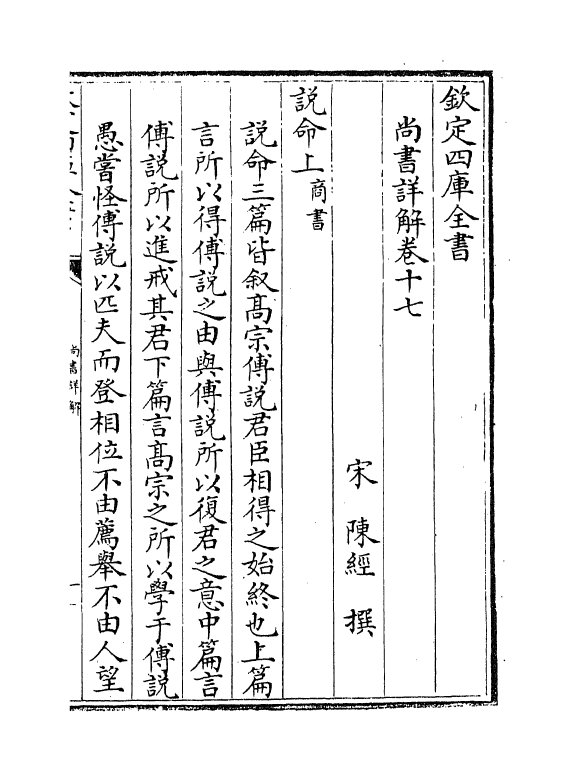 欽定四庫全書
尚書詳解卷十七
宋 陳經 撰
說命上商書
說命三篇皆叙髙宗傅說君臣相得之始終也上篇
言所以得傅說之由與傅說所以復君之意中篇言
傅說所以進戒其君下篇言髙宗之所以學于傅說
愚嘗怪傅說以匹夫而登相位不由薦舉不由人望
尚書詳解